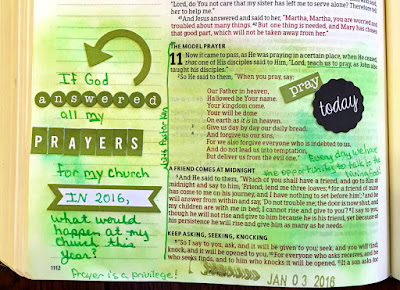 Lord, do You not care that my sister has left me to serve alone? Therefore tell
her to help me."
And Jesus answered and said to her, "Martha, Martha, you are worried and
troubled about many things. But one thing is needed, and Mary has chosen
that good part, which will not be taken away from her."
THE MODEL PRAYER
11 Now it came to pass, as He was praying in a certain place, when He ceased,
that one of His disciples said to Him, "Lord, teach us to pray, as John also
taught his disciples."
So He said to them, "When you pray, say:
Our Father in heaven,
Hallowed be Your name.
Your kingdom come.
Your will be done
On earth as it is in heaven.
Give us day by day our daily bread.
And forgive us our sins,
For we also forgive everyone who is indebted to us.
And do not lead us into temptation,
But deliver us from the evil one."
pray
today
Every day we have
the opportunity to talk to the
living God
A FRIEND COMES AT MIDNIGHT
And He said to them, "Which of you shall have a friend, and go to him at
midnight and say to him, 'Friend, lend me three loaves; for a friend of mine
has come to me on his journey, and I have nothing to set before him'; and he will
answer from within and say, 'Do not trouble me; the door is now shut, and
my children are with me in bed; I cannot rise and give to you'? I say to you,
though he will not rise and give to him because he is his friend, yet because of
his persistence he will rise and give him as many as he needs.
KEEP ASKING, SEEKING, KNOCKING
"So I say to you, ask, and it will be given to you; seek, and you will find;
knock, and it will be opened to you. For everyone who asks receives, and he
who seeks finds, and to him who knocks it will be opened. If a son asks for
JAN 03 2016
If God
answered
all my
PRAYERS
for my church
IN 2016,
what would
happen at my
church this
year?
Prayer is a privilege!
1112